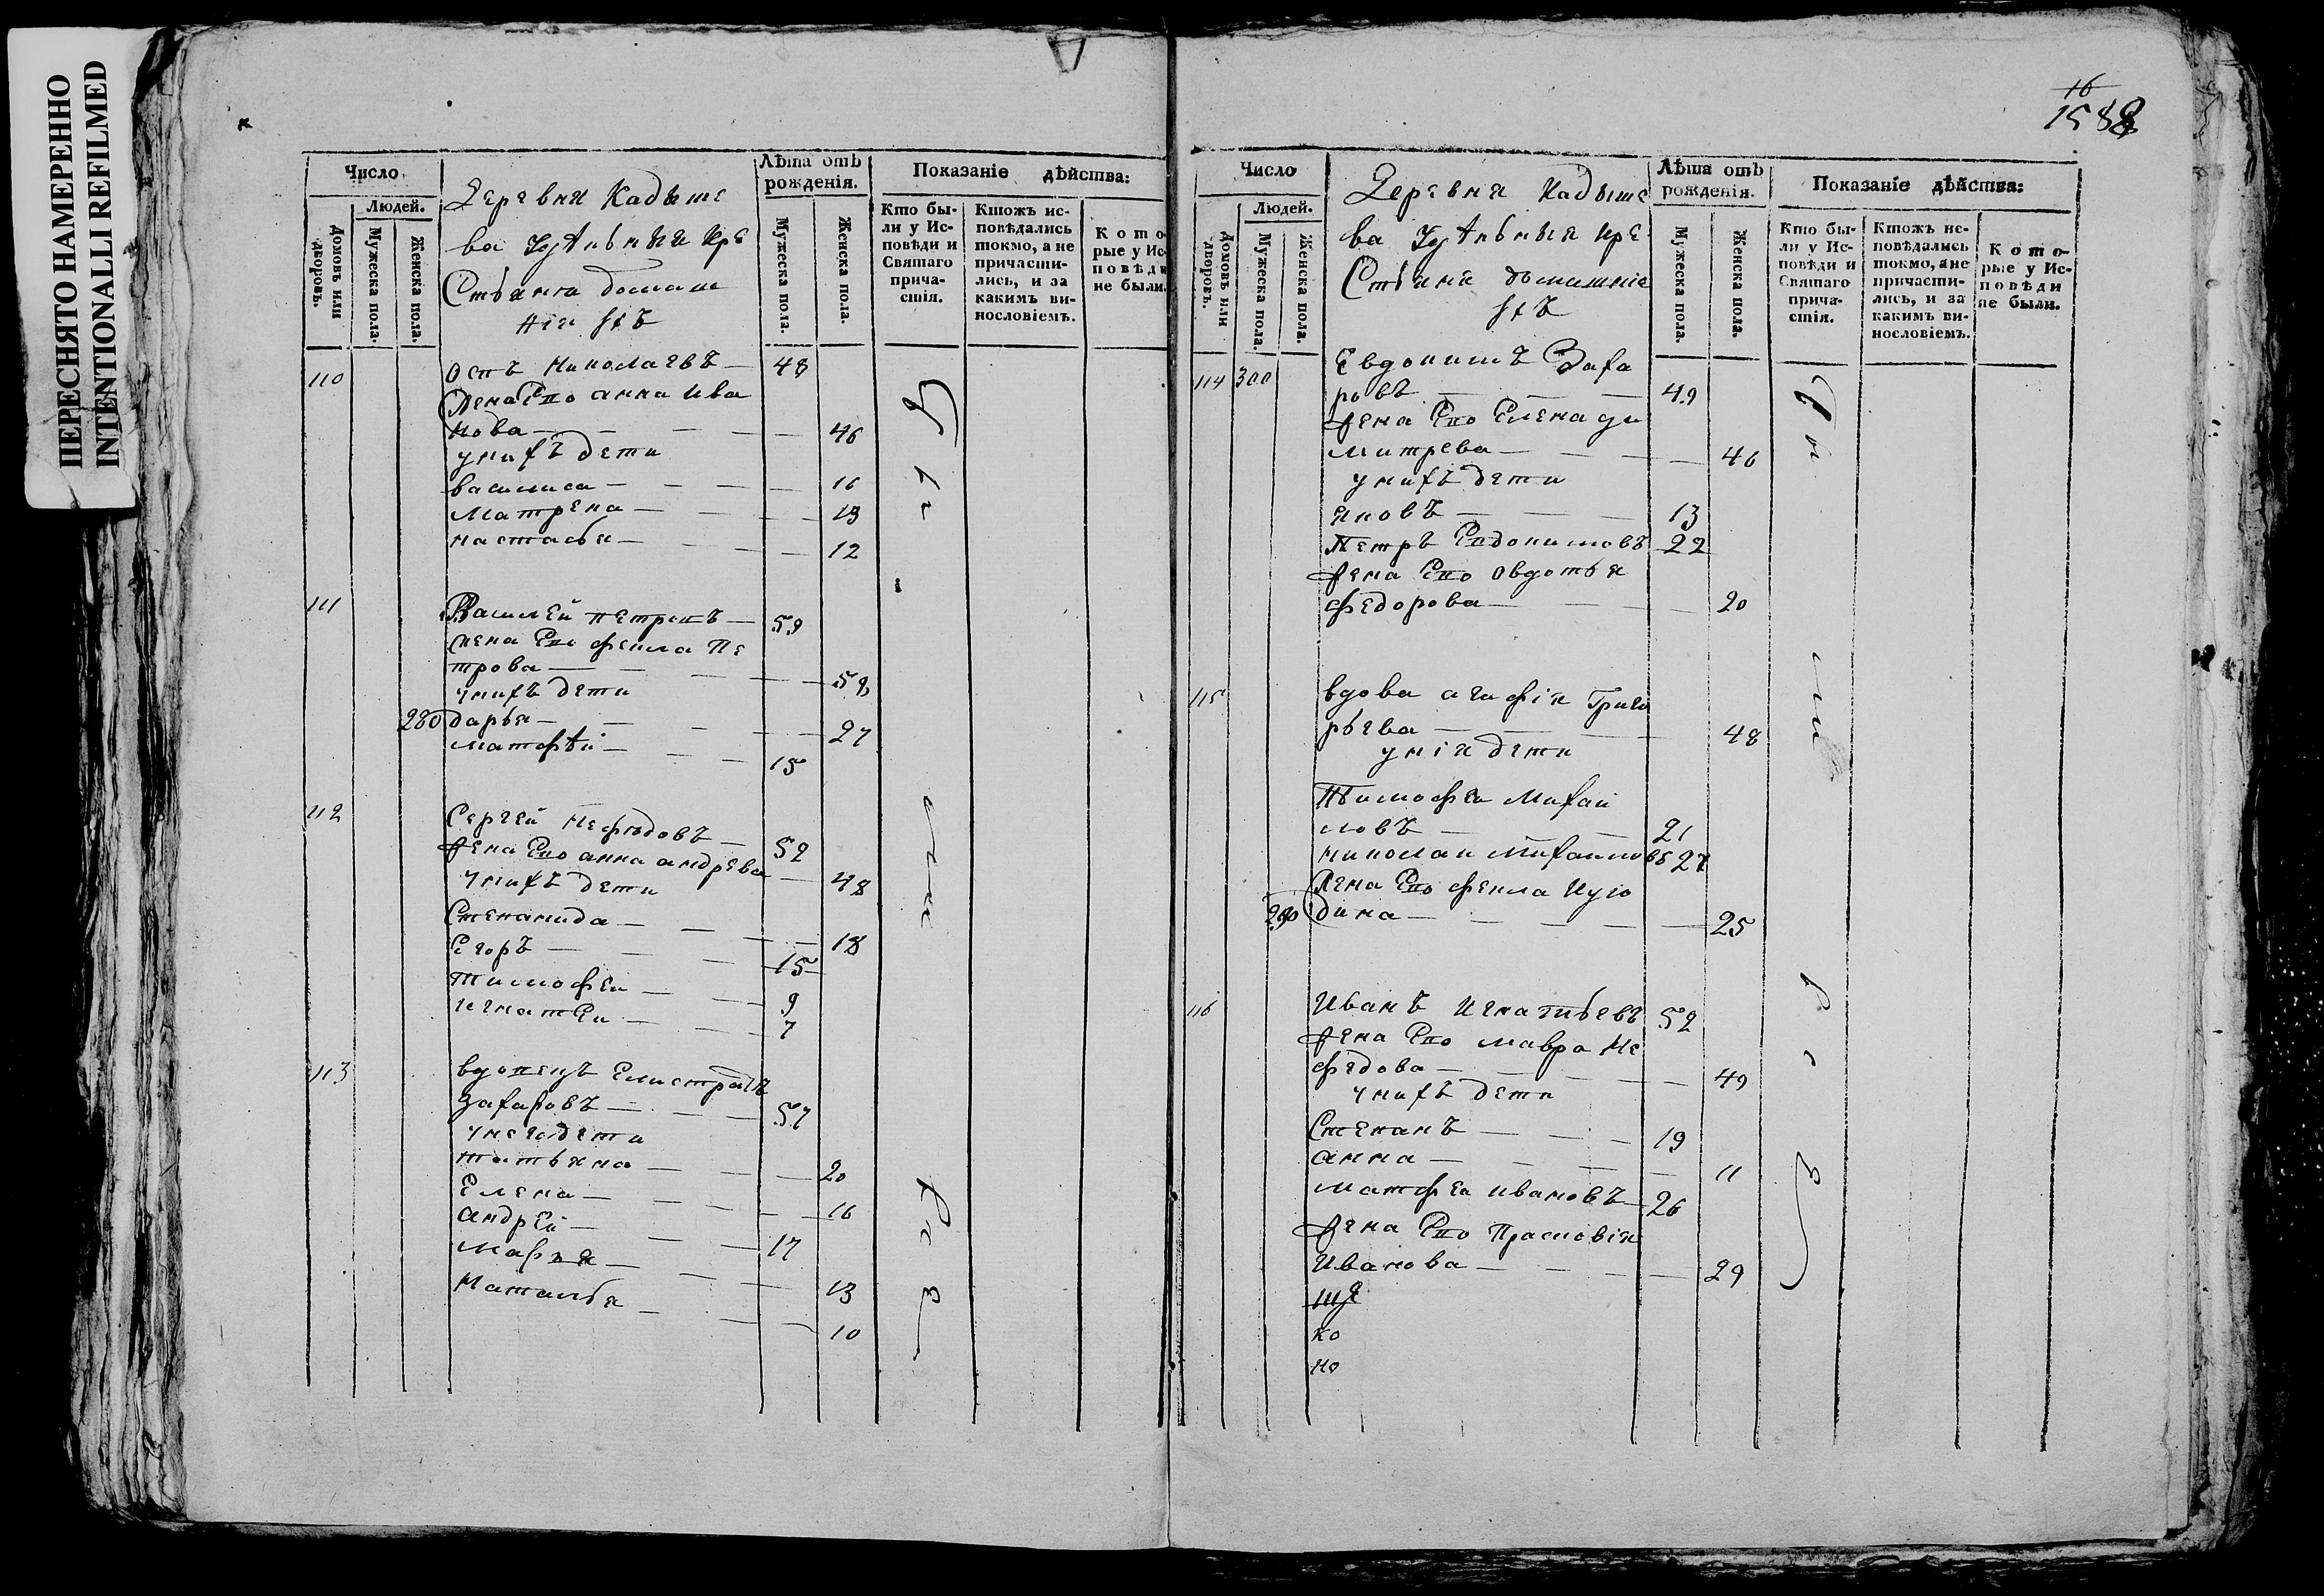 ПЕРЕСНЯТО НАМЕРЕННО
INTENTIONALLI REFILMED
Число
Людей.
Домовъ или дворовъ.
Мужеска пола.
Женска пола.
Деревни Кадыше
ва удѣльныя кре
стьяня домаш
нія ихъ
Лѣта отъ рожденія.
Мужеска пола.
Женска пола.
Показаніе дѣйства:
Кто бы-
ли у Ис-
повѣди и
Святаго
прича-
стія.
Ктожъ ис-
повѣдались
токмо, а не
причасти-
лись, и за
какимъ ви-
нословіемъ.
Кото
рые у Ис
повѣди
не были.
110 Николаевъ — 48
жена Его анна ива
нова — 46
унихъ дети
василиса — 16
Матрена — 13
настасья — 12
111 Василей петровъ — 59
жена Его фекла Пе
трова — 58
унихъ дети
280 дарья — 27
матфѣй — 15
112 Сергей нефедовъ — 52
жена Его анна андрева — 48
унихъ дети
Степанида — 18
Егоръ — 15
тимофеи — 9
игнатеи — 7
113 вдовецъ Елистратъ
Захаровъ — 57
унего дети
татьяна — 20
Елена — 16
андрей — 17
марья — 13
Наталья — 10
16
1588
Число
Людей.
Домовъ или дворовъ.
Мужеска пола.
Женска пола.
Деревни Кадыше
ва удѣльныя кре
стьяня домашніе
ихъ
Лѣта отъ рожденія.
Мужеска пола.
Женска пола.
Показаніе дѣйства:
Кто бы-
ли у Ис-
повѣди и
Святаго
прича-
стія.
Ктожъ ис-
повѣдались
токмо, а не
причасти-
лись, и за
какимъ ви-
нословіемъ.
Кото-
рые у Ис-
повѣди
не были.
114 300 Евдокимъ Заха
ровъ — 49
жена Его Елена ди
митрева — 46
унихъ дети
яковъ — 13
Петръ Евдокимовъ 22
жена Его овдотья
федорова — 20
115 вдова агафія Григо
рьева — 48
унія дети
Тимофеи Михаи
ловъ — 21
николаи михаиловъ 27
жена Его фекла Ку
290 дина — 25
116 Иванъ Игнатьевъ 52
жена Его мавра Не
федова — 49
унихъ дети
Степанъ — 19
анна — 11
матфеи ивановъ — 26
жена Его Прасковія
Иванова — 29
ко
но